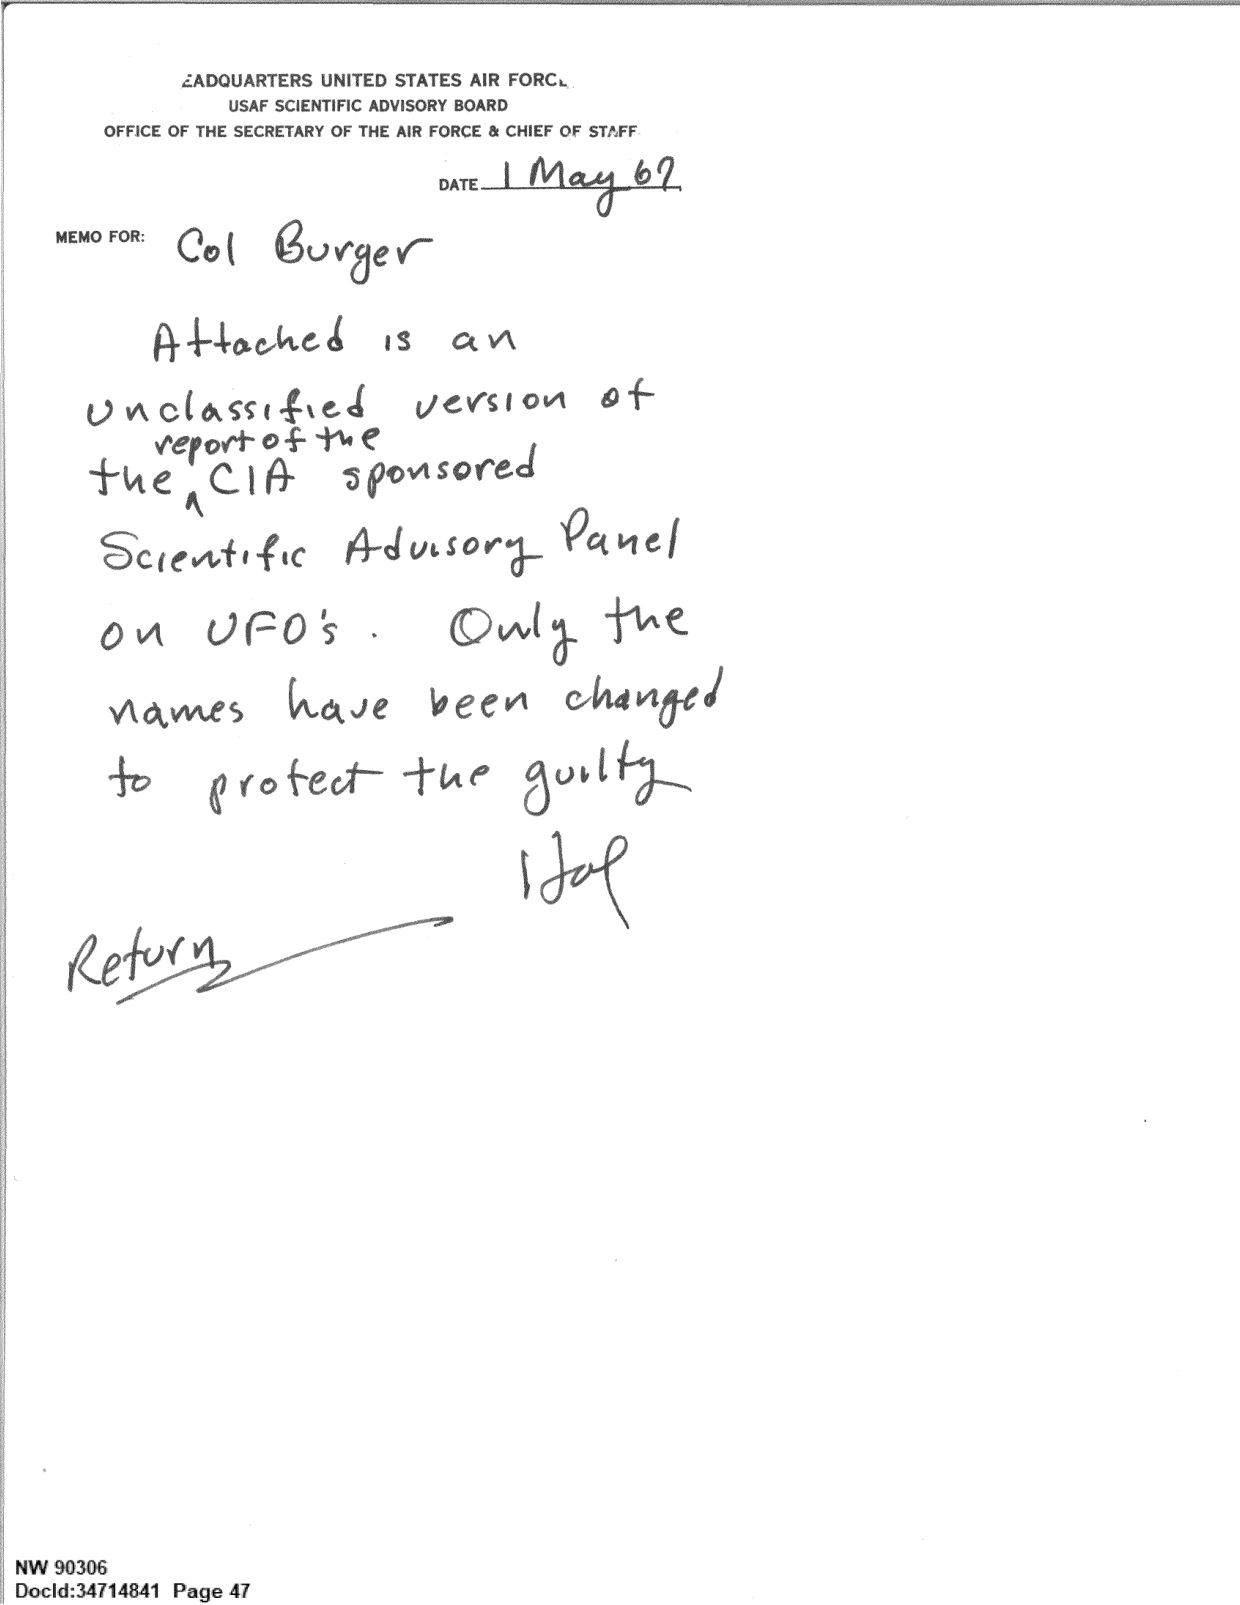 HEADQUARTERS UNITED STATES AIR FORCE
USAF SCIENTIFIC ADVISORY BOARD
OFFICE OF THE SECRETARY OF THE AIR FORCE & CHIEF OF STAFF
DATE 1 May 67
MEMO FOR: Col Burger
Attached is an
unclassified version of
report of the
the ^ CIA sponsored
Scientific Advisory Panel
on UFO's. Only the
names have been changed
to protect the guilty
Hal
Return
NW 90306
DocId:34714841 Page 47